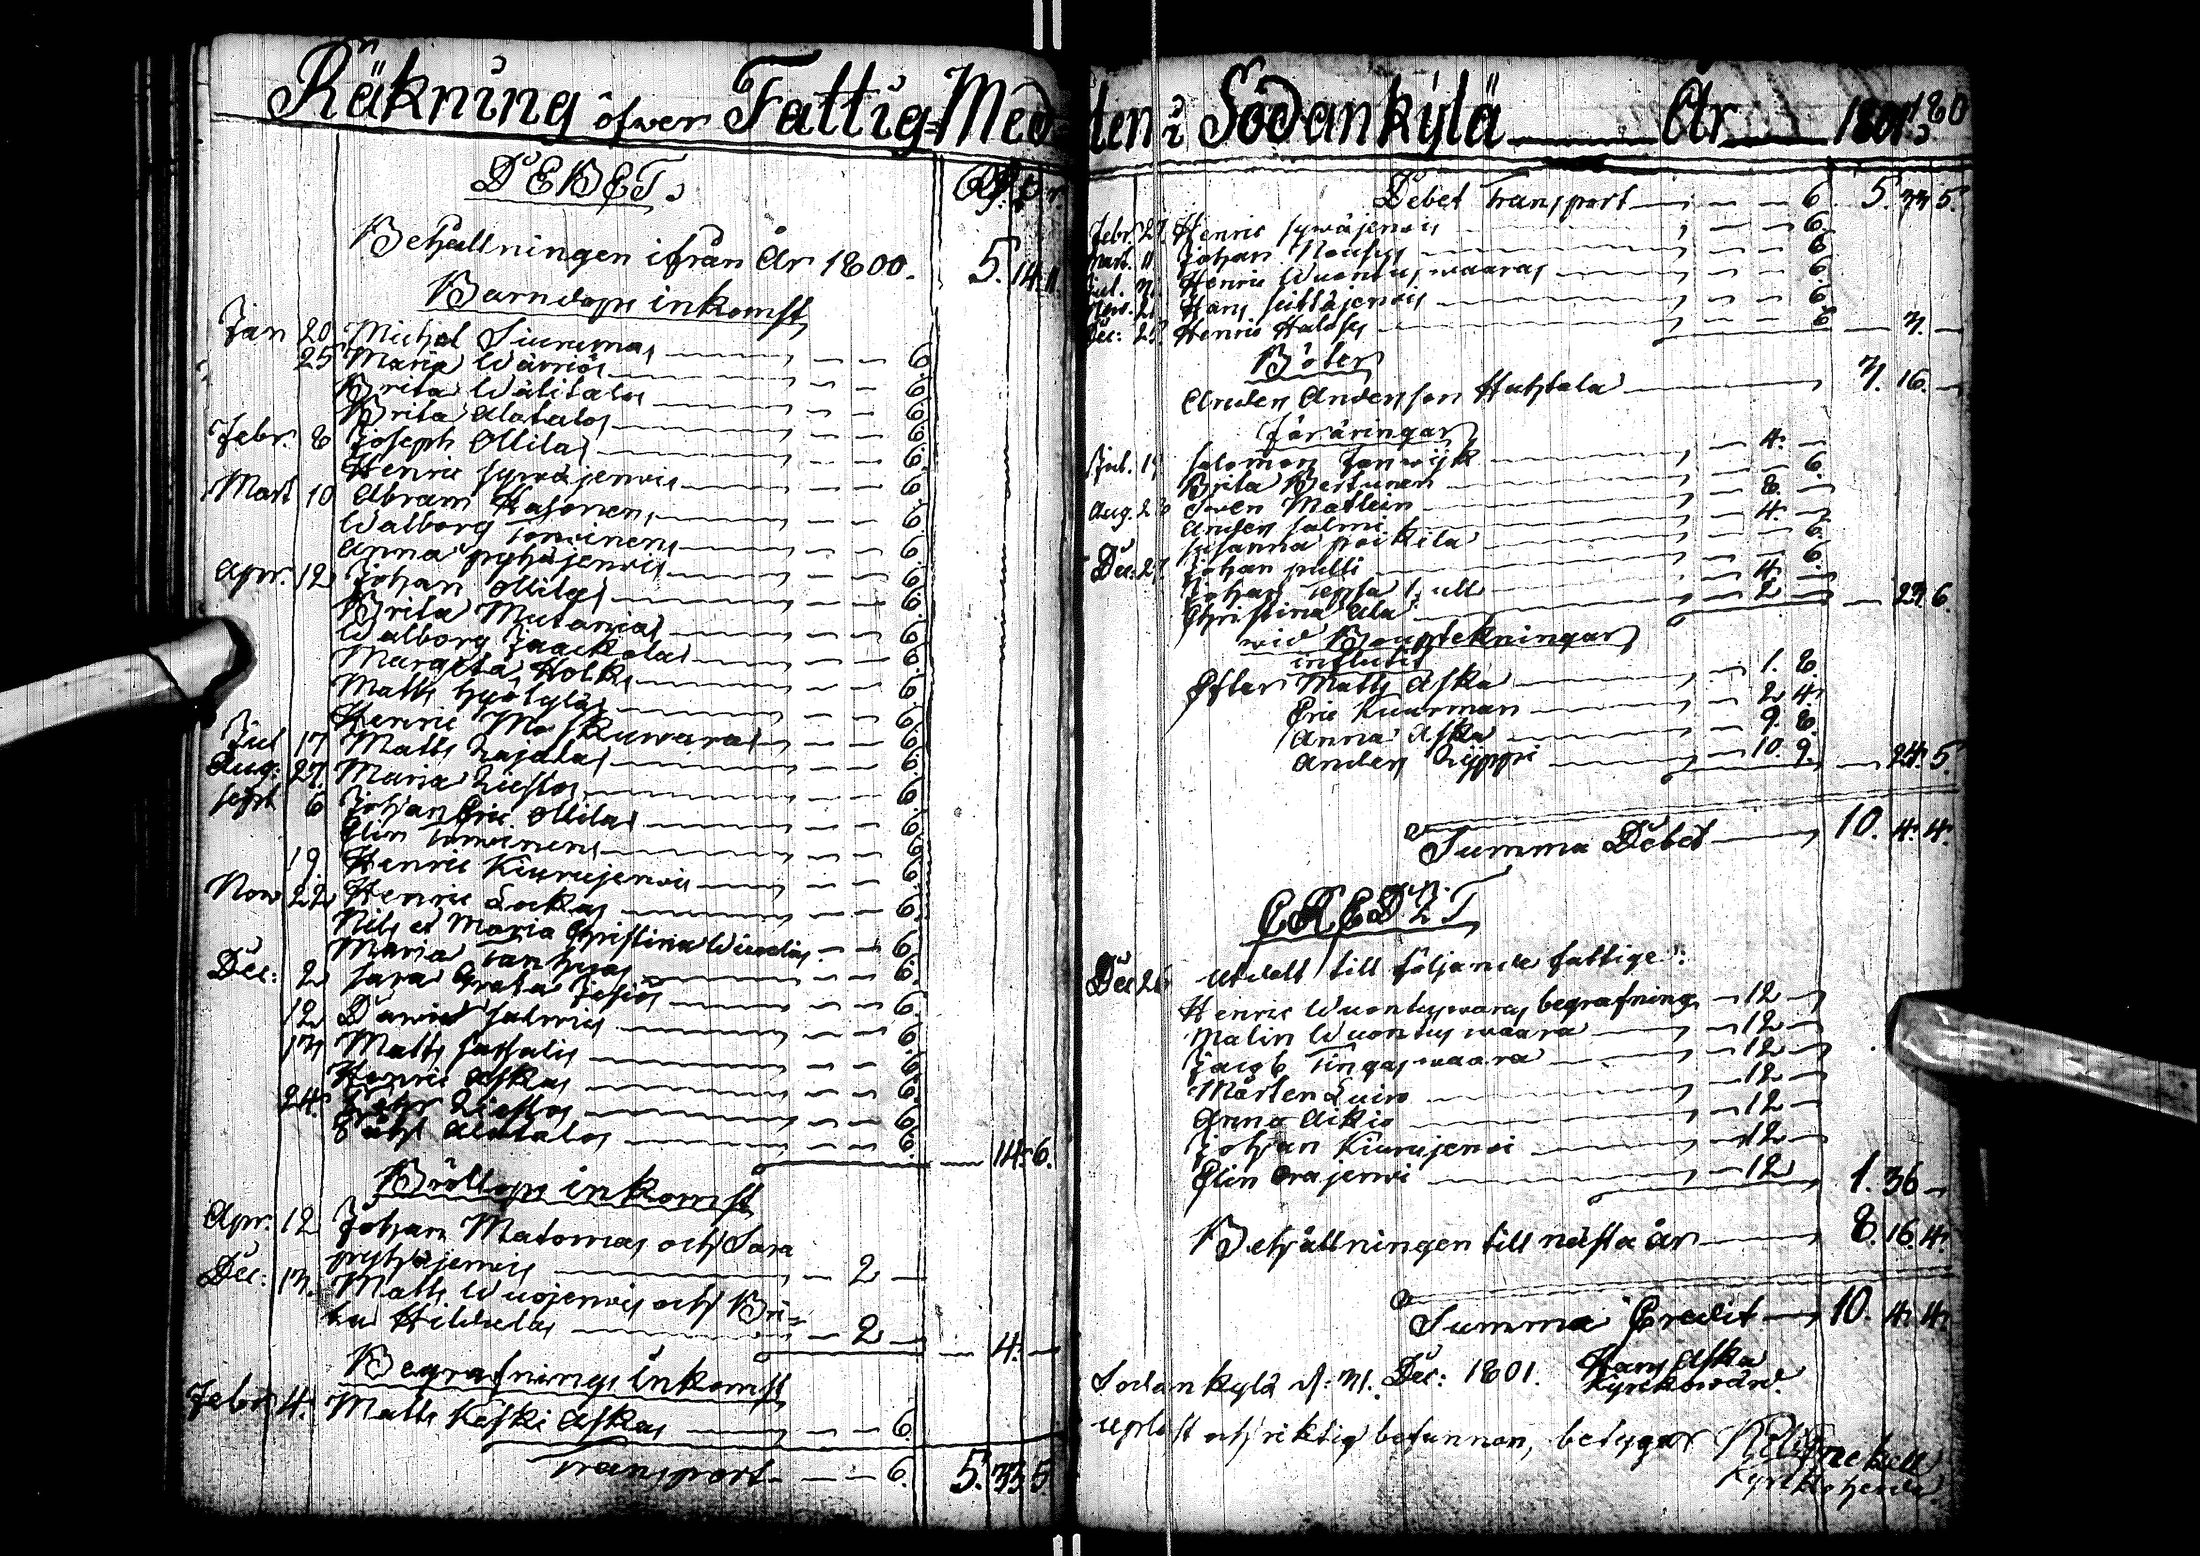 Räkning öfwer Fattig-Medlen i Sodankylä År 1801.
DEBET.
Behållningen ifrån År 1800. 5. 14. 11.
Barndops inkomst
Jan 20 Michel Siurumas 6.
25 Maria Wärriös 6.
Brita Wälitalos 6.
Brita Alatalos 6.
Febr. 8 Joseph Ollilas 6.
Henric Syväjerwis 6.
Mart 10 Abram Hasonens 6.
Walborg Toruinens 6.
Anna pyhäjerwis 6.
Apr. 12 Johan Ollilas 6.
Brita Mutanias 6.
Walborg Jaackolas 6.
Margeta Holks 6.
Matts hyötyläs 6.
Henric Moskuwaras 6.
Jul 17 Matts Lajalas 6.
Aug: 27. Maria Liestos 6.
Sept 6 Johan Eric Ollilas 6.
Elin Torvinens 6.
19 Henric Kiurujerwis 6.
Now 22 Henric Lockas 6.
Nils et Maria Christina 6.
Maria Tanhuas 6.
Dec: 2 Sara Greta Jesiös 6.
12 David Salmis 6.
13 Matts Sattalis 6.
Henric Askas 6.
24. Petr Liestos 6.
Alatalos 6. 14. 6.
Bröllops inkomst
Apr. 12 Johan Matomas och Sara
pyhäjerwis 2
Dec: 13. Matts Wuojerwis och Bri=
ta Hiltulas 2 4.
Begrafnings inkomst
Febr. 4. Matts Keski Askas 6.
Transport 6. 5. 33 5.
Debet Transport 6. 5. 33 5.
Febr. 27. Henric Sywäjerwis 6.
Mart. 11 Johan Nousus 6.
Jul. Henric Wuontuswaaras 6.
Now. 21 Hans 6.
Dec: 25. Henric Haloss 6. 3.
Böter
Anders Andersson Huhtala 3. 16.
Föräringar
Jul. Salomon 4.
Brita Bertunen 6.
Aug. Swen Matlein 8.
Anders Salmi 4.
Susanna poikela 6.
Dec: 27. Johan pulli 6.
Johan 4.
Christina Ala 2 23. 6.
wid Boupteckningar
influtit
Efter Matts Aska 1. 8.
Eric Kuurman 2 4.
Anna Aska 9. 8.
Anders Kyppi 10. 9. 24. 5.
Summa Debet 10. 4. 4.
CREDIT
Dec 26 Utdelt till följande fattige:
Henric Wuontuswaras begrafning 12
Malin Wuontuswaara 12
Jacob Tingaswaara 12
Mårten Luiro 12
Anna Aikio 12
Johan Kiurujerwi 12
Elin Orajerwi 12 1. 36
Behållningen till nästa år 8. 16. 4.
Summa Credit 10. 4. 4.
Sodankylä d: 31. Dec: 1801. Hans Aska
Kyrkowärd.
upläst och riktig befunnen, betygar
Kyrkoherde.